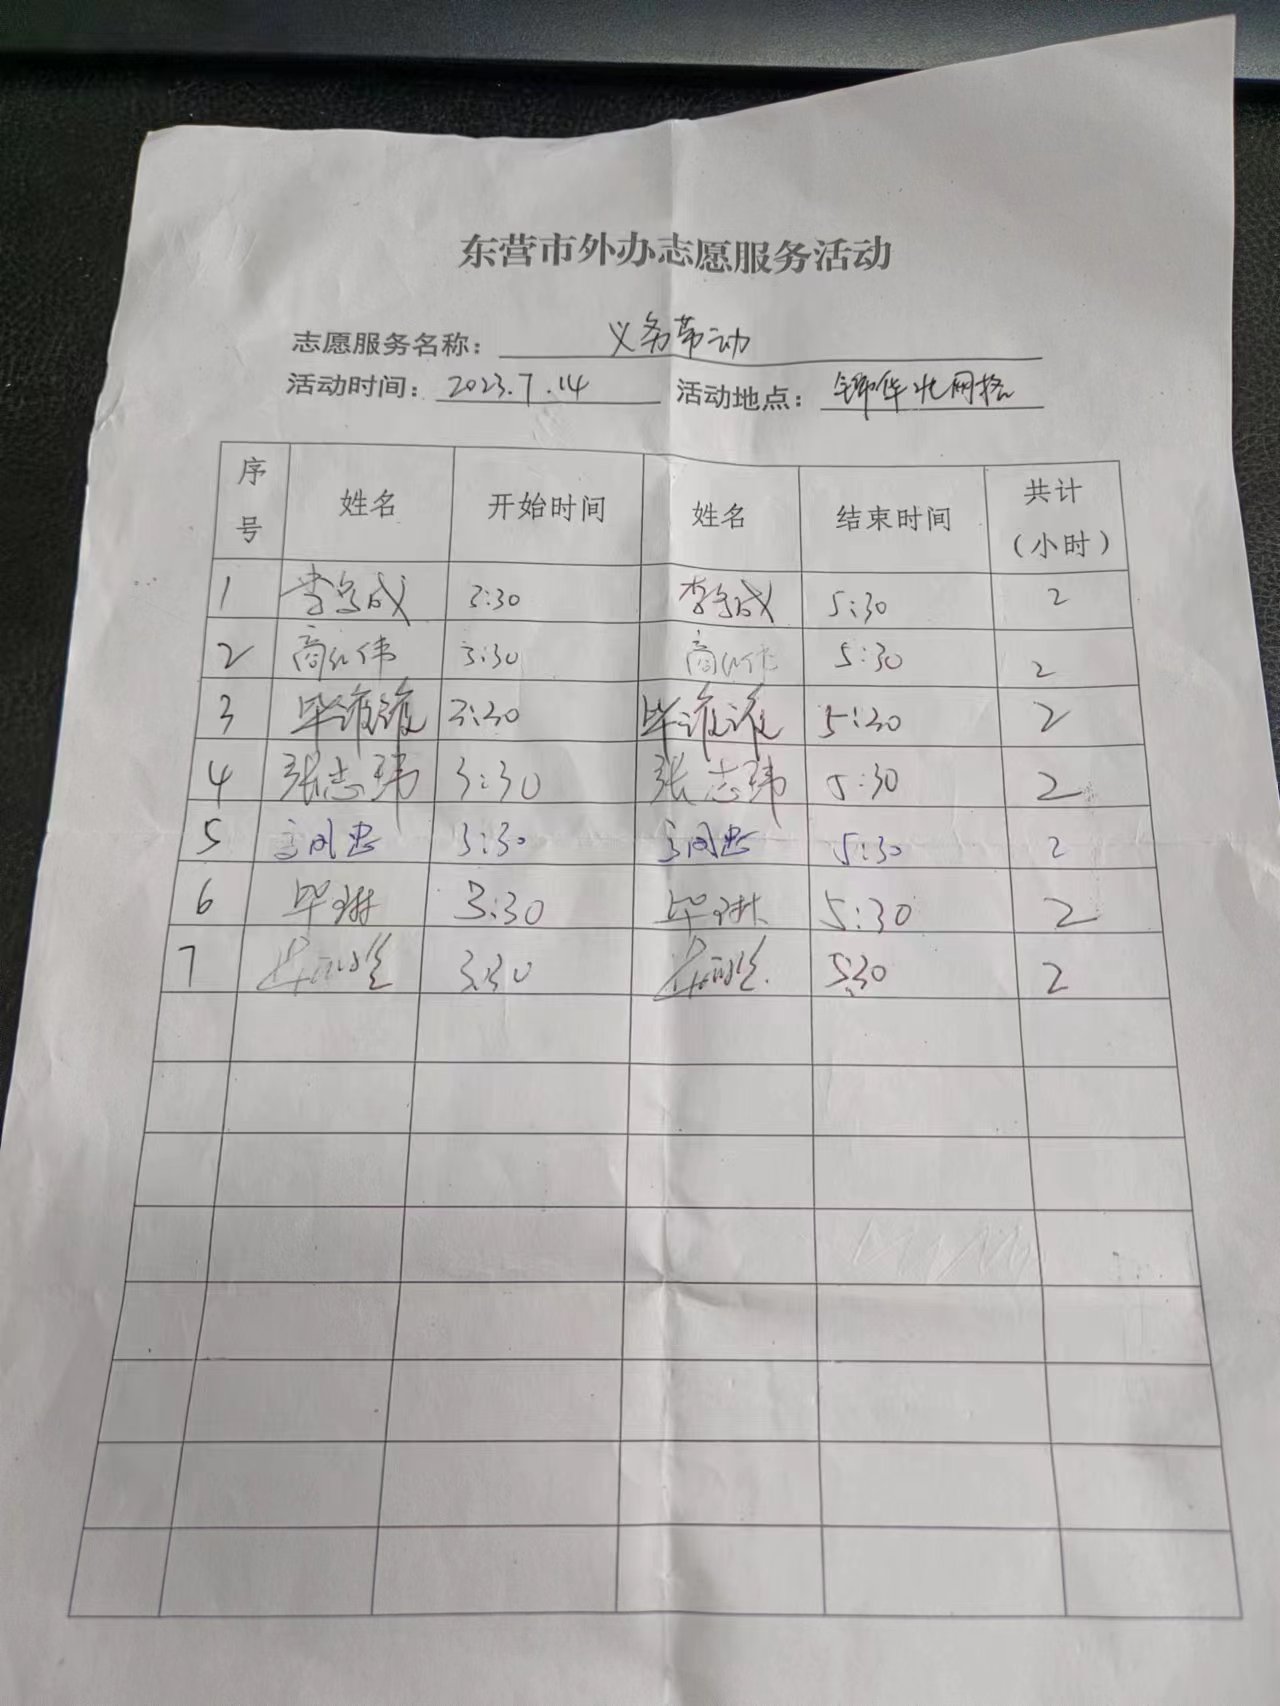 东营市外办志愿服务活动
志愿服务名称： 义务劳动
活动时间： 2023.7.14 活动地点： 锦华北网格
序号 姓名 开始时间 姓名 结束时间 共计（小时）
1 3:30 5:30 2
2 商 伟 3:30 商 伟 5:30 2
3 毕谁谁 3:30 毕谁谁 5:30 2
4 张志玮 3:30 张志玮 5:30 2
5 3:30 5:30 2
6 毕琳 3:30 毕琳 5:30 2
7 3:30 5:30 2